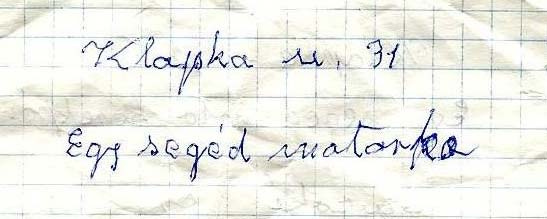 Klapka u. 31
Egy segéd motorka